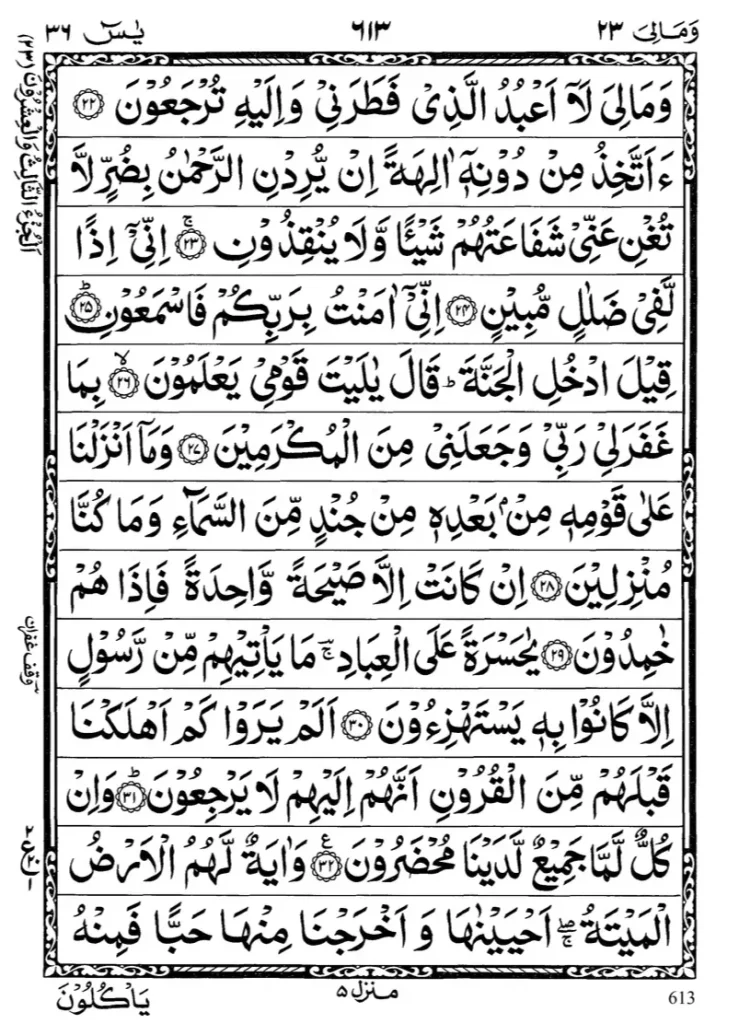 وَمَالِیَ ٢٣ ٦١٣ يٰسٓ ٣٦
وَمَالِیَ لَاۤ اَعۡبُدُ الَّذِیۡ فَطَرَنِیۡ وَاِلَیۡهِ تُرۡجَعُوۡنَ ﴿٢٢﴾
ءَاَتَّخِذُ مِنۡ دُوۡنِهٖۤ اٰلِهَةً اِنۡ یُّرِدۡنِ الرَّحۡمٰنُ بِضُرٍّ لَّا
تُغۡنِ عَنِّیۡ شَفَاعَتُهُمۡ شَیۡـًٔا وَّلَا یُنۡقِذُوۡنِ ﴿٢٣﴾ۚ اِنِّیۡۤ اِذًا
لَّفِیۡ ضَلٰلٍ مُّبِیۡنٍ ﴿٢٤﴾ اِنِّیۡۤ اٰمَنۡتُ بِرَبِّكُمۡ فَاسۡمَعُوۡنِ ﴿٢٥﴾ؕ
قِیۡلَ ادۡخُلِ الۡجَنَّةَ ؕ قَالَ یٰلَیۡتَ قَوۡمِیۡ یَعۡلَمُوۡنَ ﴿٢٦﴾ۙ بِمَا
غَفَرَلِیۡ رَبِّیۡ وَجَعَلَنِیۡ مِنَ الۡمُكۡرَمِیۡنَ ﴿٢٧﴾ وَمَاۤ اَنۡزَلۡنَا
عَلٰی قَوۡمِهٖ مِنۡۢ بَعۡدِهٖ مِنۡ جُنۡدٍ مِّنَ السَّمَآءِ وَمَا كُنَّا
مُنۡزِلِیۡنَ ﴿٢٨﴾ اِنۡ كَانَتۡ اِلَّا صَیۡحَةً وَّاحِدَةً فَاِذَا هُمۡ
خٰمِدُوۡنَ ﴿٢٩﴾ یٰحَسۡرَةً عَلَی الۡعِبَادِ ۚ مَا یَاۡتِیۡهِمۡ مِّنۡ رَّسُوۡلٍ
اِلَّا كَانُوۡا بِهٖ یَسۡتَهۡزِءُوۡنَ ﴿٣٠﴾ اَلَمۡ یَرَوۡا كَمۡ اَهۡلَكۡنَا
قَبۡلَهُمۡ مِّنَ الۡقُرُوۡنِ اَنَّهُمۡ اِلَیۡهِمۡ لَا یَرۡجِعُوۡنَ ﴿٣١﴾ؕ وَاِنۡ
كُلٌّ لَّمَّا جَمِیۡعٌ لَّدَیۡنَا مُحۡضَرُوۡنَ ﴿٣٢﴾ع وَاٰیَةٌ لَّهُمُ الۡاَرۡضُ
الۡمَیۡتَةُ ۖۚ اَحۡیَیۡنٰهَا وَ اَخۡرَجۡنَا مِنۡهَا حَبًّا فَمِنۡهُ
یَاۡكُلُوۡنَ منزل ٥ 613
اَلۡجُزۡءُ الثَّالِثُ وَالۡعِشۡرُوۡنَ (٢٣)
وقف غفران